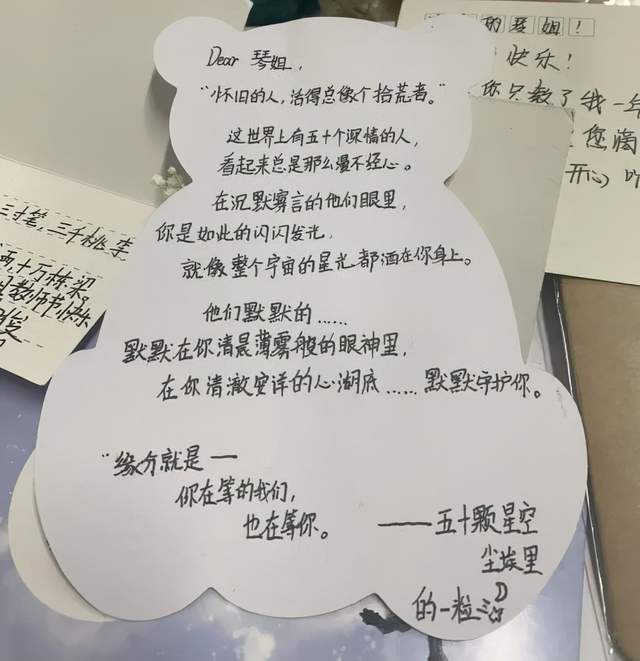 Dear 琴姐，
“怀旧的人，活得总像个拾荒者。”
这世界上有五十个深情的人，
看起来总是那么漫不经心。
在沉默寡言的他们眼里，
你是如此的闪闪发光，
就像整个宇宙的星光都洒在你身上。
他们默默的……
默默在你清晨薄雾般的眼神里，
在你清澈安详的心湖底……默默守护你。
“缘分就是一
你在等的我们，
也在等你。
——五十颗星空
尘埃里
的一粒
的琴姐！
快乐！
您只教了我一年
您淘
开心
三寸笔，三千桃李
十万栋梁。
教师节快乐